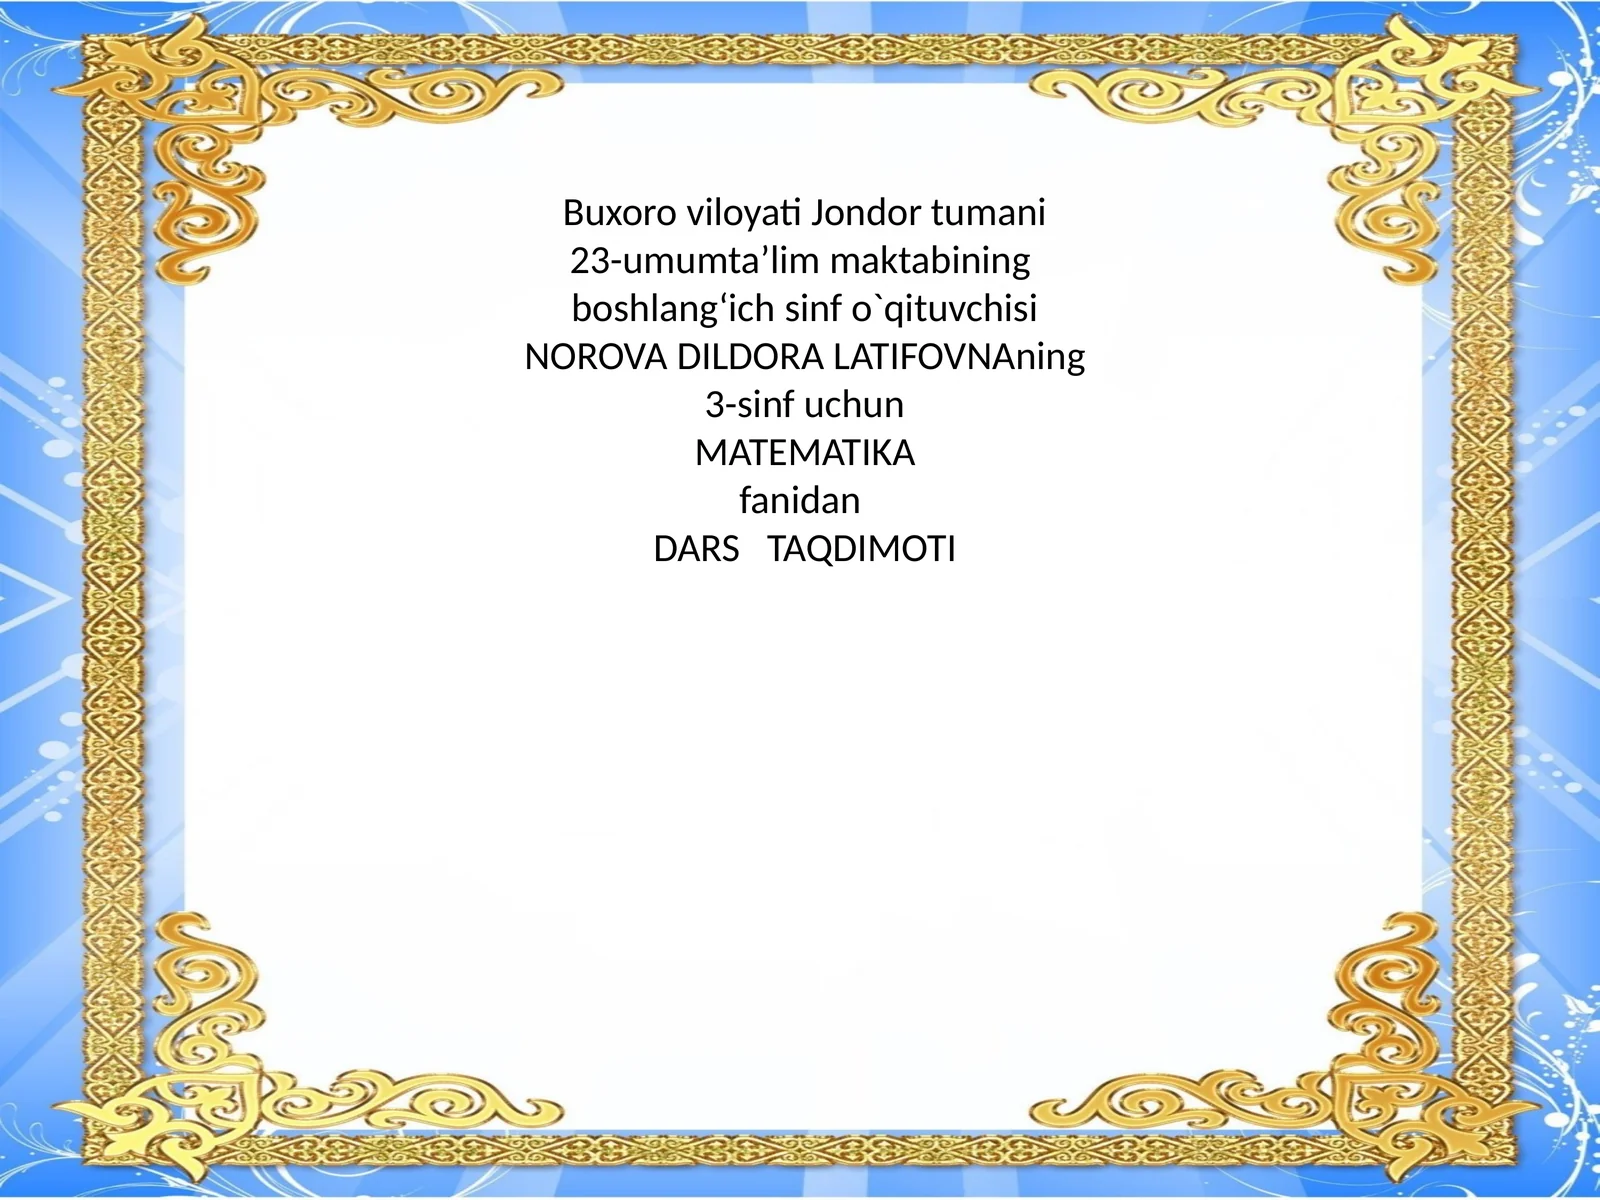 Buxoro viloyati Jondor tumani
23-umumta’lim maktabining
boshlang‘ich sinf o`qituvchisi
NOROVA DILDORA LATIFOVNAning
3-sinf uchun
MATEMATIKA
fanidan
DARS   TAQDIMOTI